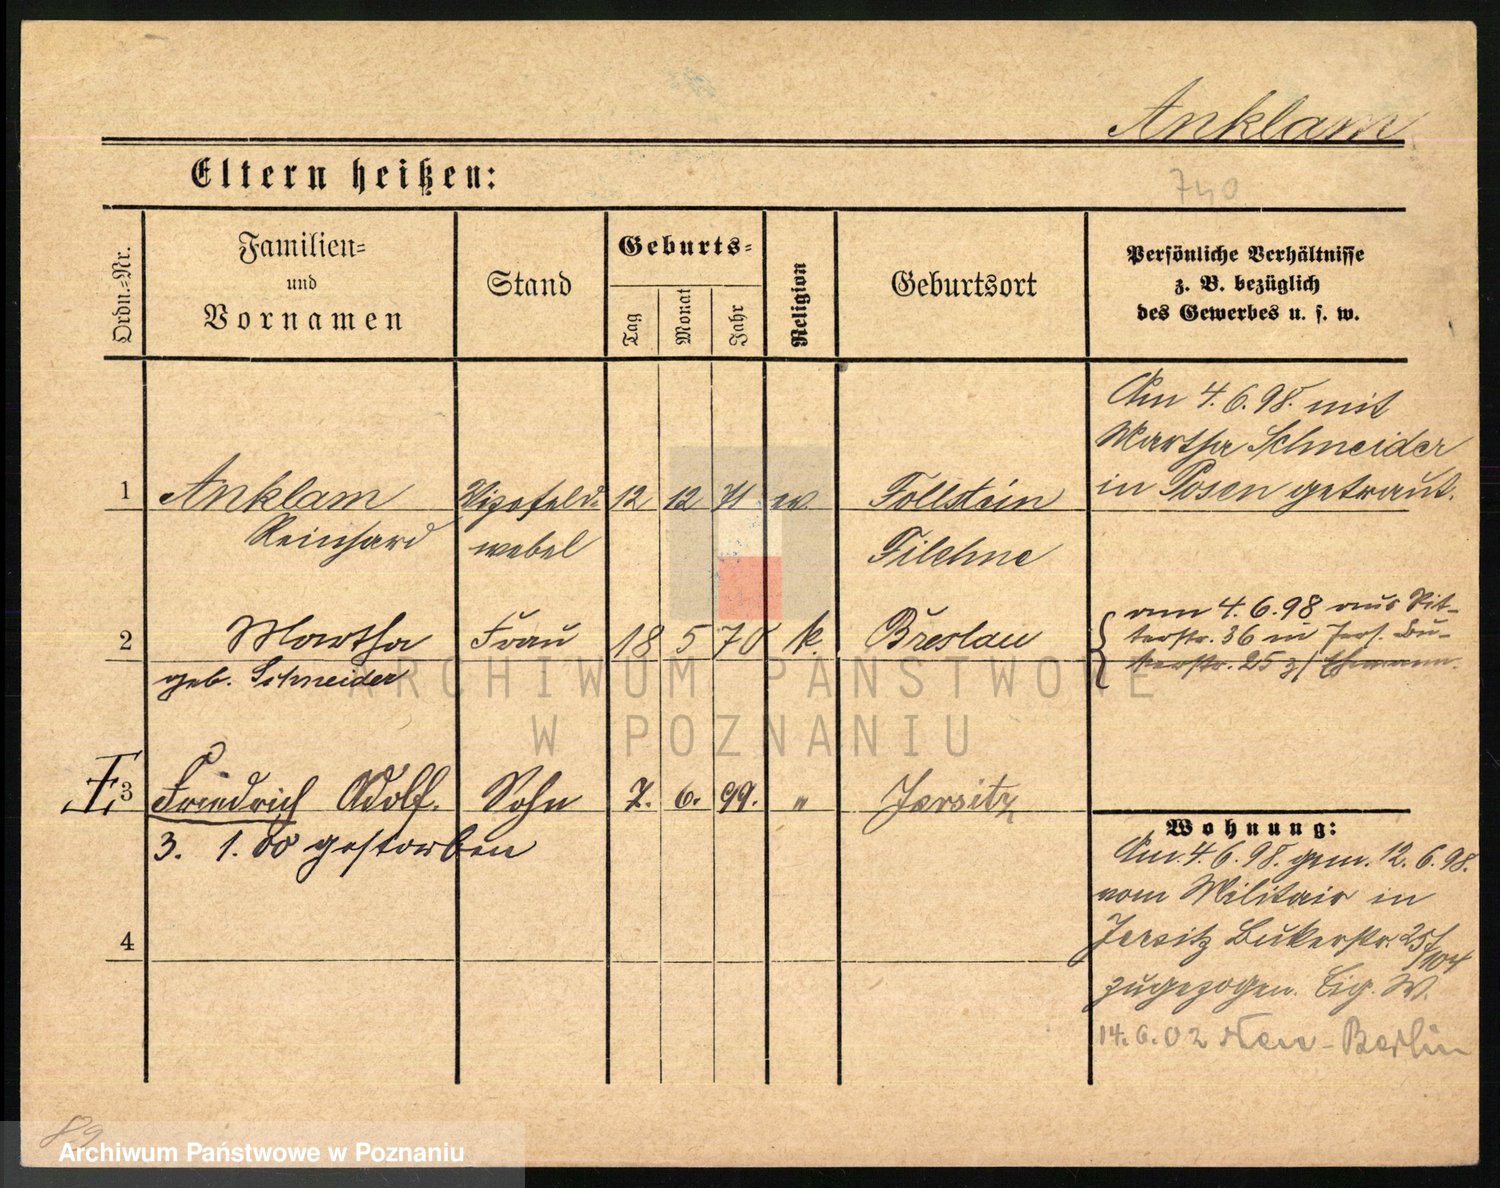 Anklam
Eltern heißen:
740
Ordn.-Nr.
Familien-
und
Vornamen
Stand
Geburts-
Tag
Monat
Jahr
Religion
Geburtsort
Persönliche Verhältnisse
z. B. bezüglich
des Gewerbes u. s. w.
Am 4. 6. 98. mit
Martha Schneider
in Posen getraut.
1 Anklam Vizefeld- 12 12 71 ev. Follstein
Reinhard webel Filehne
2 Martha Frau 18 5 70 k. Breslau
geb. Schneider
am 4. 6. 98 aus Rit-
terstr. 36 in Jers. Bu-
kerstr. 25 z/ Ehemann.
3 Friedrich Adolf. Sohn 7. 6. 99. " Jersitz
3. 1. 00 gestorben
4
Wohnung:
Am 4. 6. 98. gem. 12. 6. 98.
vom Militair in
Jersitz Bukerstr. 25/
104
zugezogen. Eig. W.
14. 6. 02 Neu-Berlin
89
ARCHIWUM PAŃSTWOWE
W POZNANIU
Archiwum Państwowe w Poznaniu